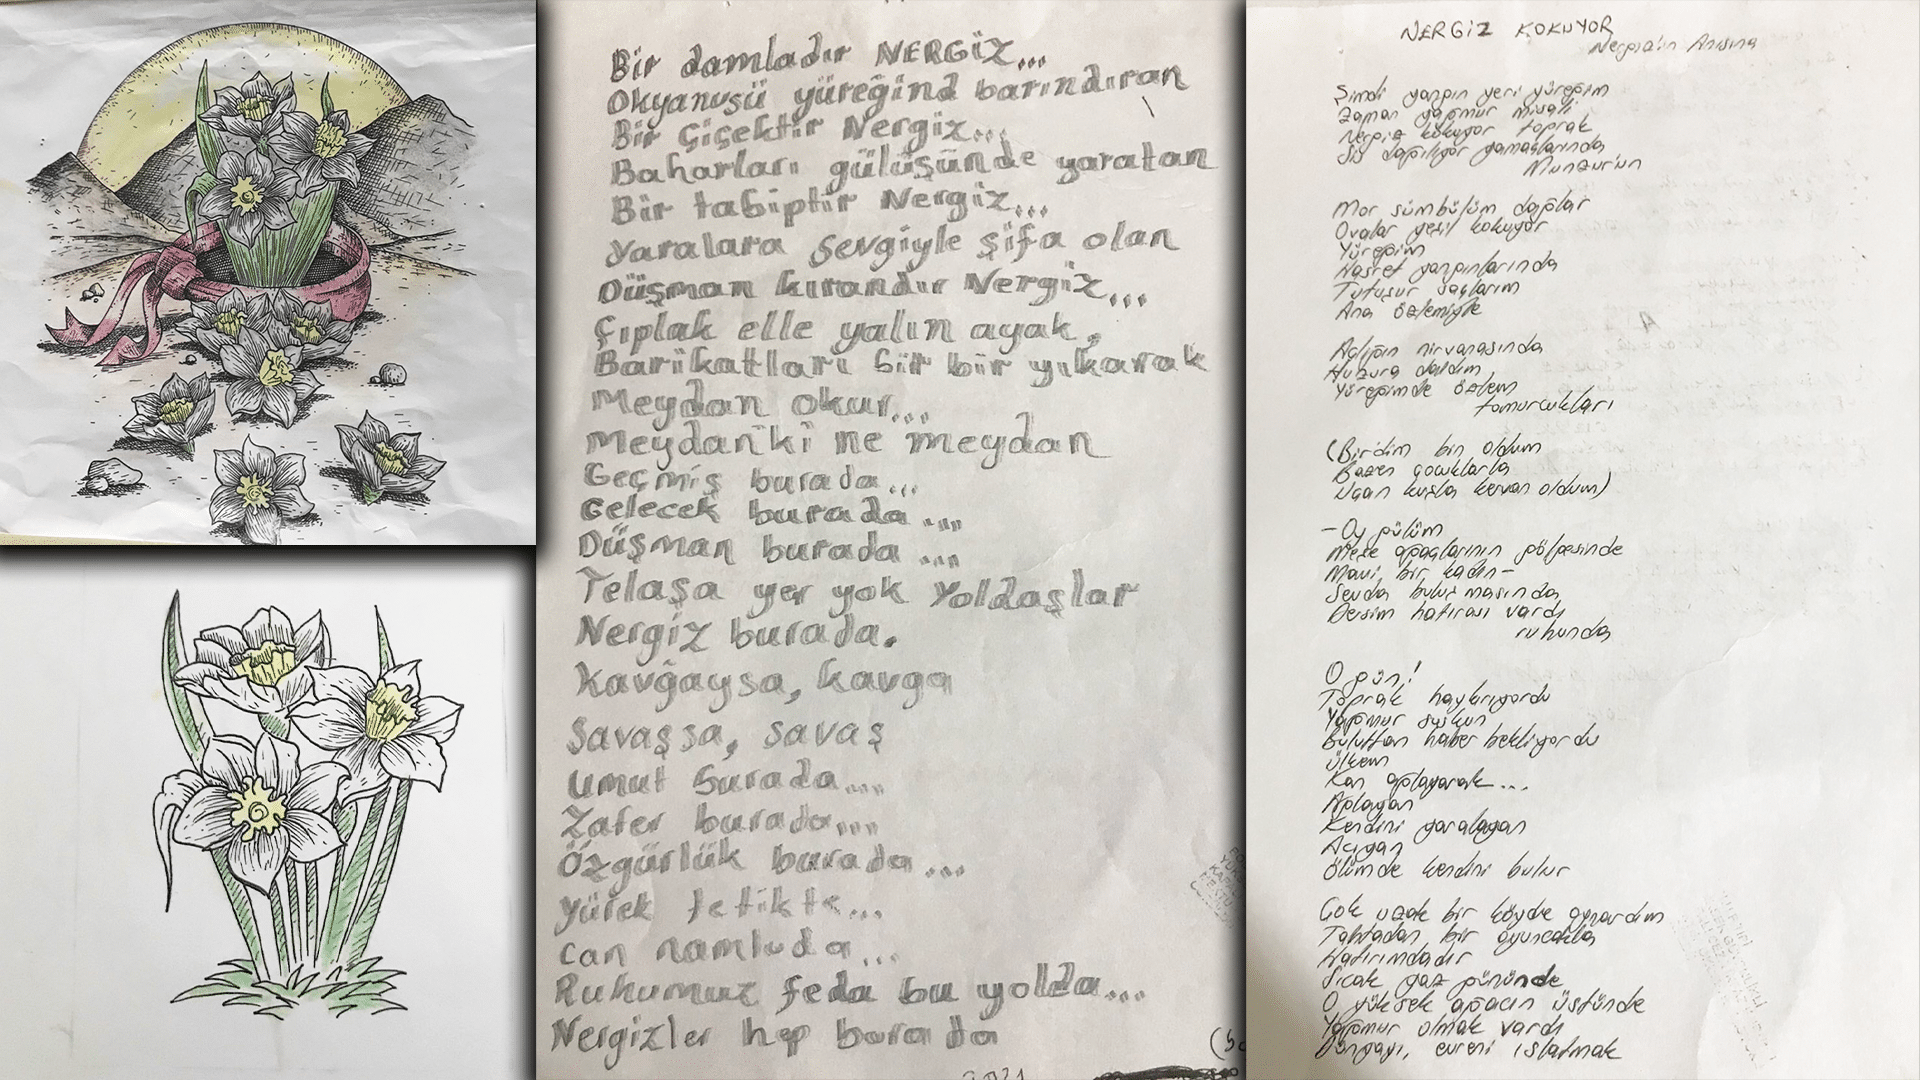 Bir damladır NERGİZ...
Okyanusü yüreğind barındıran
Bir Çiçektir Nergiz...
Baharları gülüşünde yaratan
Bir tabiptir Nergiz...
Yaralara Sevgiyle şifa olan
Düşman kırandır Nergiz...
Çıplak elle yalın ayak,
Barikatları bir bir yıkarak
Meydan okur...
Meydan'ki ne meydan
Geçmiş burada...
Gelecek burada...
Düşman burada...
Telaşa yer yok Yoldaşlar
Nergiz burada.
Kavğaysa, kavga
Savaşsa, savaş
Umut burada...
Zafer burada...
Özgürlük burada...
Yürek tetikte...
Can namluda...
Ruhumuz feda bu yolda...
Nergizler hep burada
2021
NERGİZ KOKUYOR
Nergiz'in Anısına
Şimdi yangın yeri yüreğim
Zaman yağmur misali
Nergiz kokuyor toprak
Sis dağılıyor yamaçlarında
Munzur'un
Mor sümbülüm dağlar
Ovalar yeşil kokuyor
Yüreğim
Hasret yangınlarında
Tutuşur saçlarım
Ana özlemiyle
Açlığın nirvanasında
Huzura daldım
Yüreğimde özlem
tomurcukları
(Birdim bin oldum
Bazen çocuklarla
Uçan kuşla kervan oldum)
-Oy gülüm
Meşe ağaçlarının gölgesinde
Mavi bir kadın-
Sevda buluşmasında
Dersim hatırası vardı
ruhunda
O gün!
Toprak haykırıyordu
Yağmur suskun
Buluttan haber bekliyordu
ülkem
Kan ağlayarak...
Ağlayan
Kendini yaralayan
Acıyan
Ölümde kendini bulur
Çok uzak bir köyde oynardım
Tahtadan bir oyuncakla
Hatırımdadır
Sıcak yaz gününde
O yüksek ağacın üstünde
Yağmur olmak vardı
Dünyayı, evreni ıslatmak